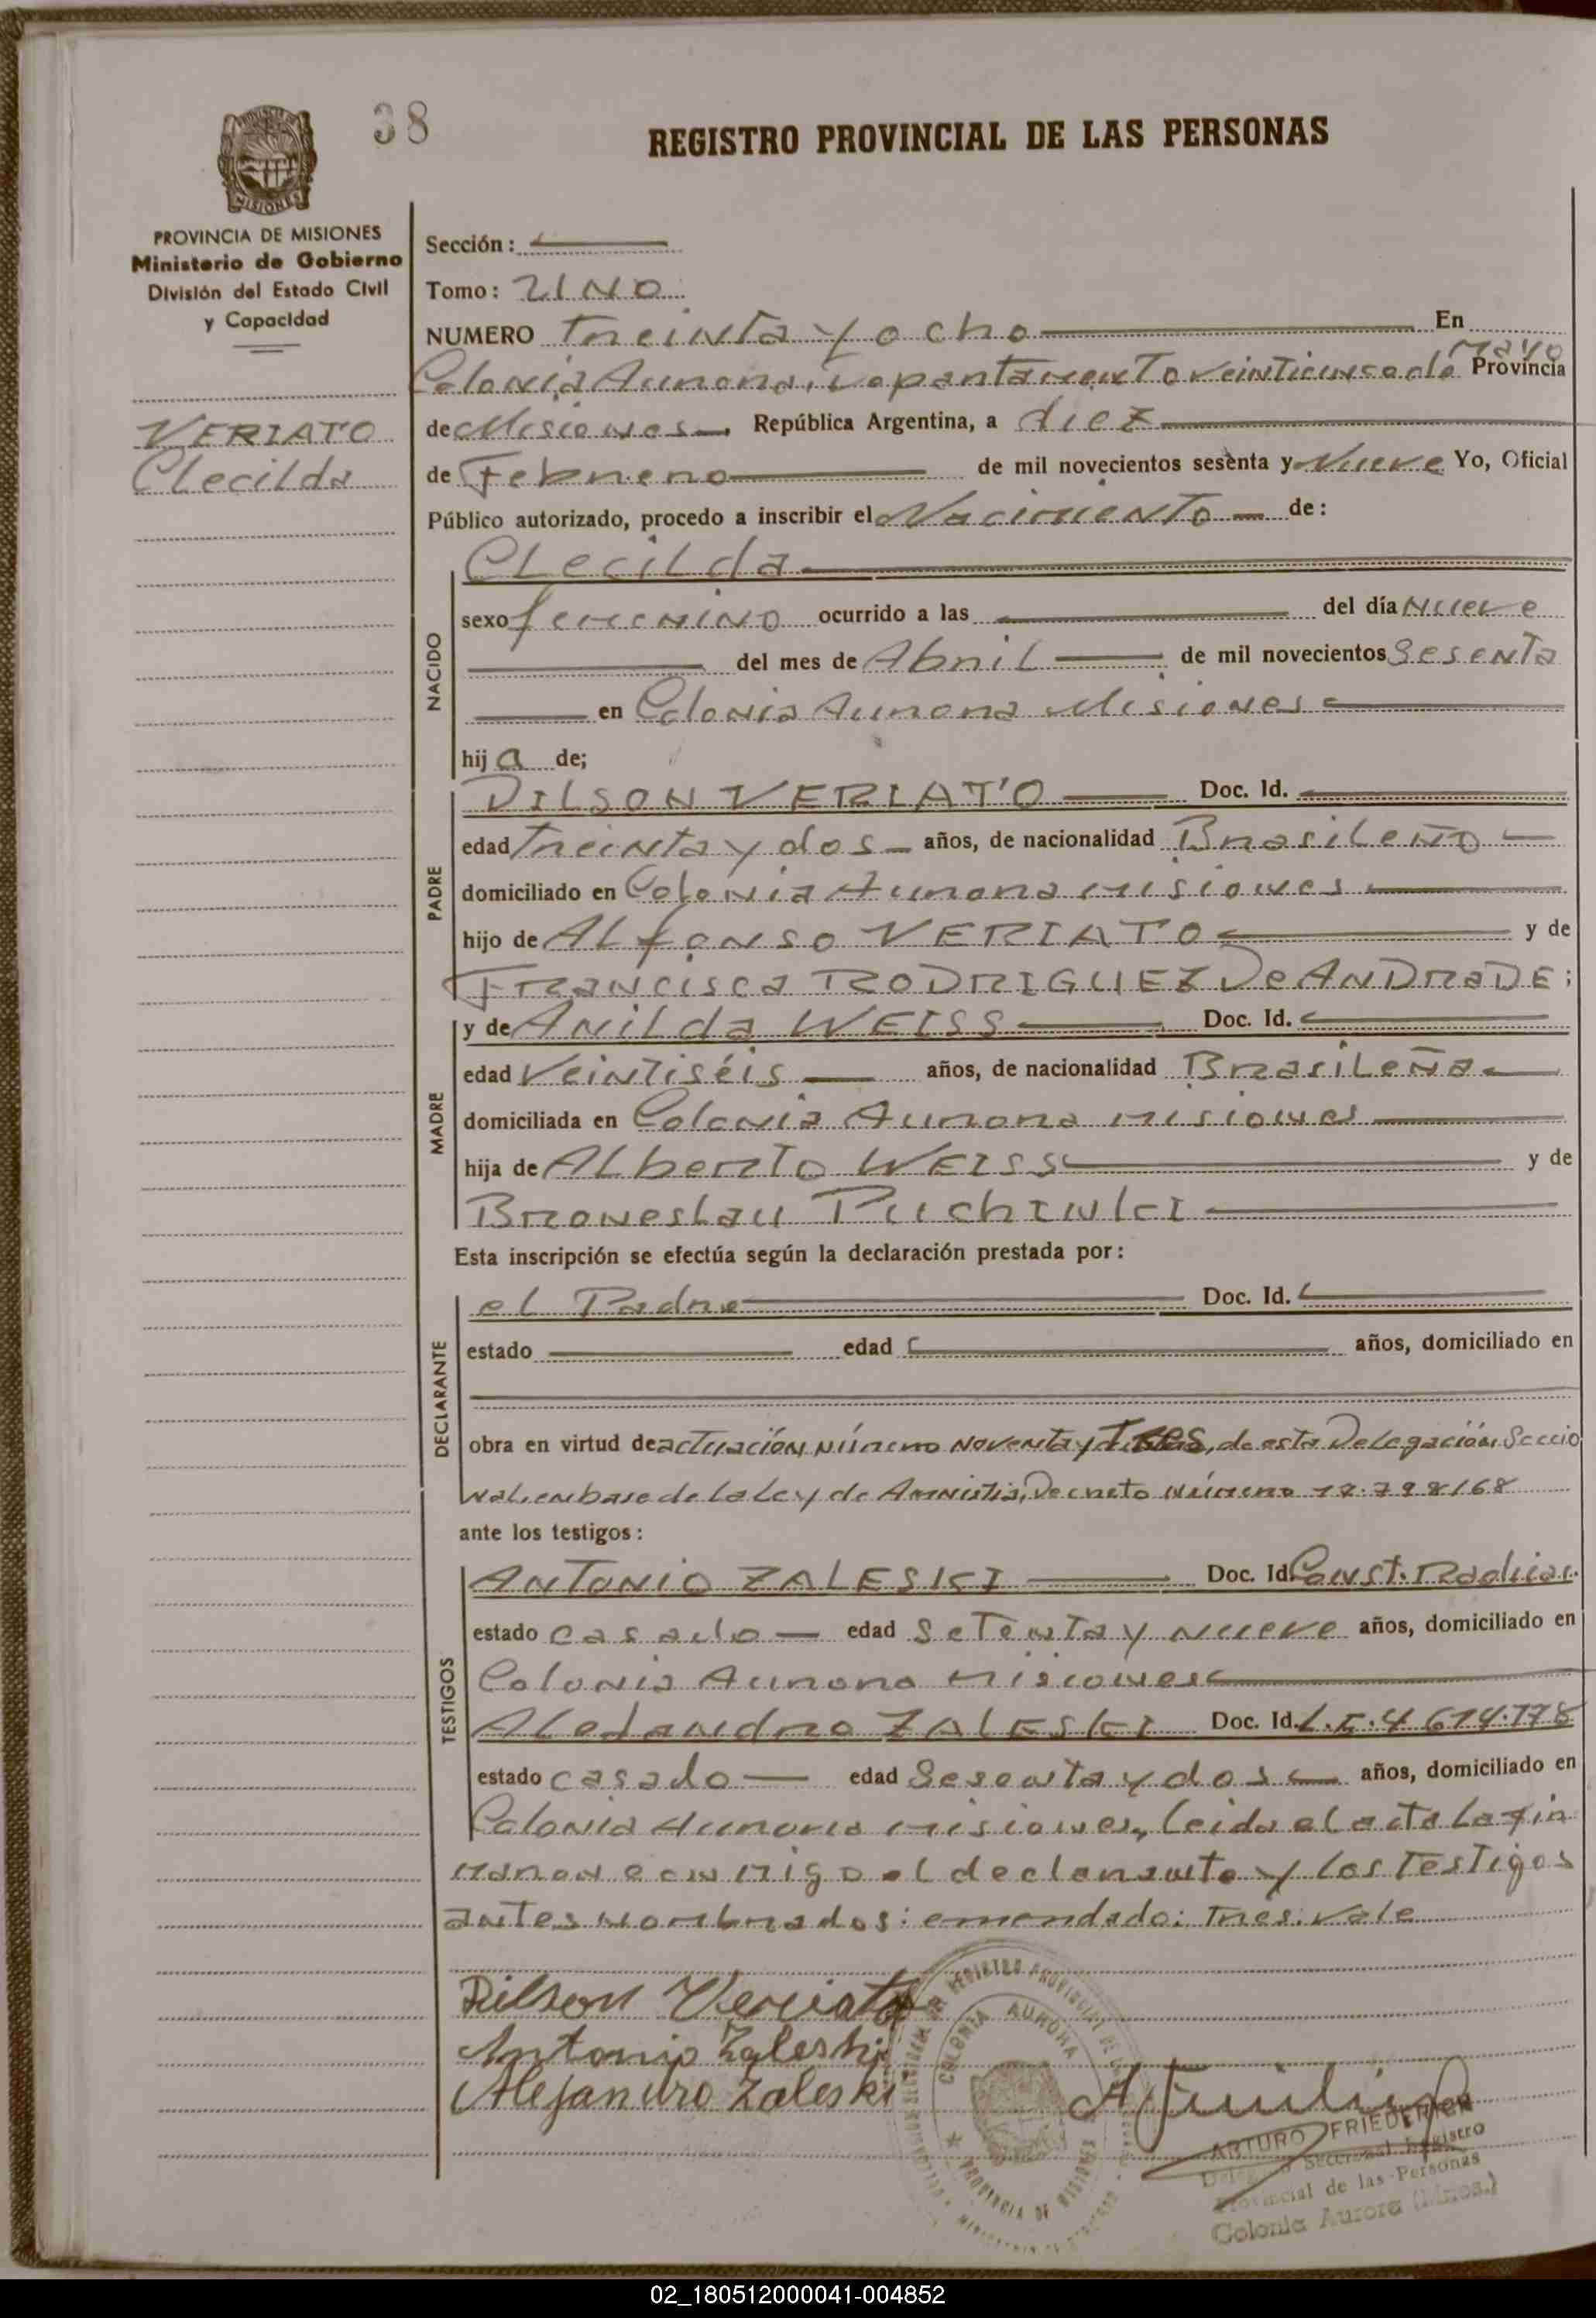 38
REGISTRO PROVINCIAL DE LAS PERSONAS
PROVINCIA DE MISIONES
Ministerio de Gobierno
División del Estado Civil
y Capacidad
VERIATO
Clecilda
Sección:
Tomo: UNO
NUMERO Treinta y ocho En
Colonia Aurora, Departamento veinticinco de Mayo Provincia
de Misiones República Argentina, a diez
de Febrero de mil novecientos sesenta y Nueve Yo, Oficial
Público autorizado, procedo a inscribir el Nacimiento de:
CLecilda
NACIDO
sexo femenino ocurrido a las del día Nueve
del mes de Abril de mil novecientos Sesenta
en Colonia Aurora Misiones
hija de;
PADRE
DILSON VERIATO Doc. Id.
edad Treinta y dos años, de nacionalidad Brasileño
domiciliado en Colonia Aurora Misiones
hijo de Alfonso VERIATO y de
Francisca RODRIGUEZ De ANDRADE;
MADRE
y de Anilda WEISS Doc. Id.
edad Veintiséis años, de nacionalidad Brasileña
domiciliada en Colonia Aurora Misiones
hija de Alberto WEISS y de
Broneslau
Esta inscripción se efectúa según la declaración prestada por:
DECLARANTE
el Padre Doc. Id.
estado edad años, domiciliado en
obra en virtud de actuación número noventa y Tres, de esta Delegación Seccio
nal, en base de la Ley de Amnistia, Decreto Número 17.798/68
ante los testigos:
TESTIGOS
ANTONIO ZALESKI Doc. Id. Const. Radicac.
estado casado edad Setenta y nueve años, domiciliado en
Colonia Aurora Misiones
Alejandro ZALESKI Doc. Id. L.E. 4 614.778
estado casado edad Sesenta y dos años, domiciliado en
Colonia Aurora Misiones, leida el acta la fir
maron conmigo el declarante y los Testigos
antes nombrados: enmendado: Tres. Vale
Dilson Veriato
Antonio Zaleski
Alejandro Zaleski
COLONIA AURORA
PROVINCIA DE MISIONES
ARTURO FRIEDERICH
Delegado Seccional Registro
Provincial de las Personas
Colonia Aurora (Mnes.)
02_180512000041-004852